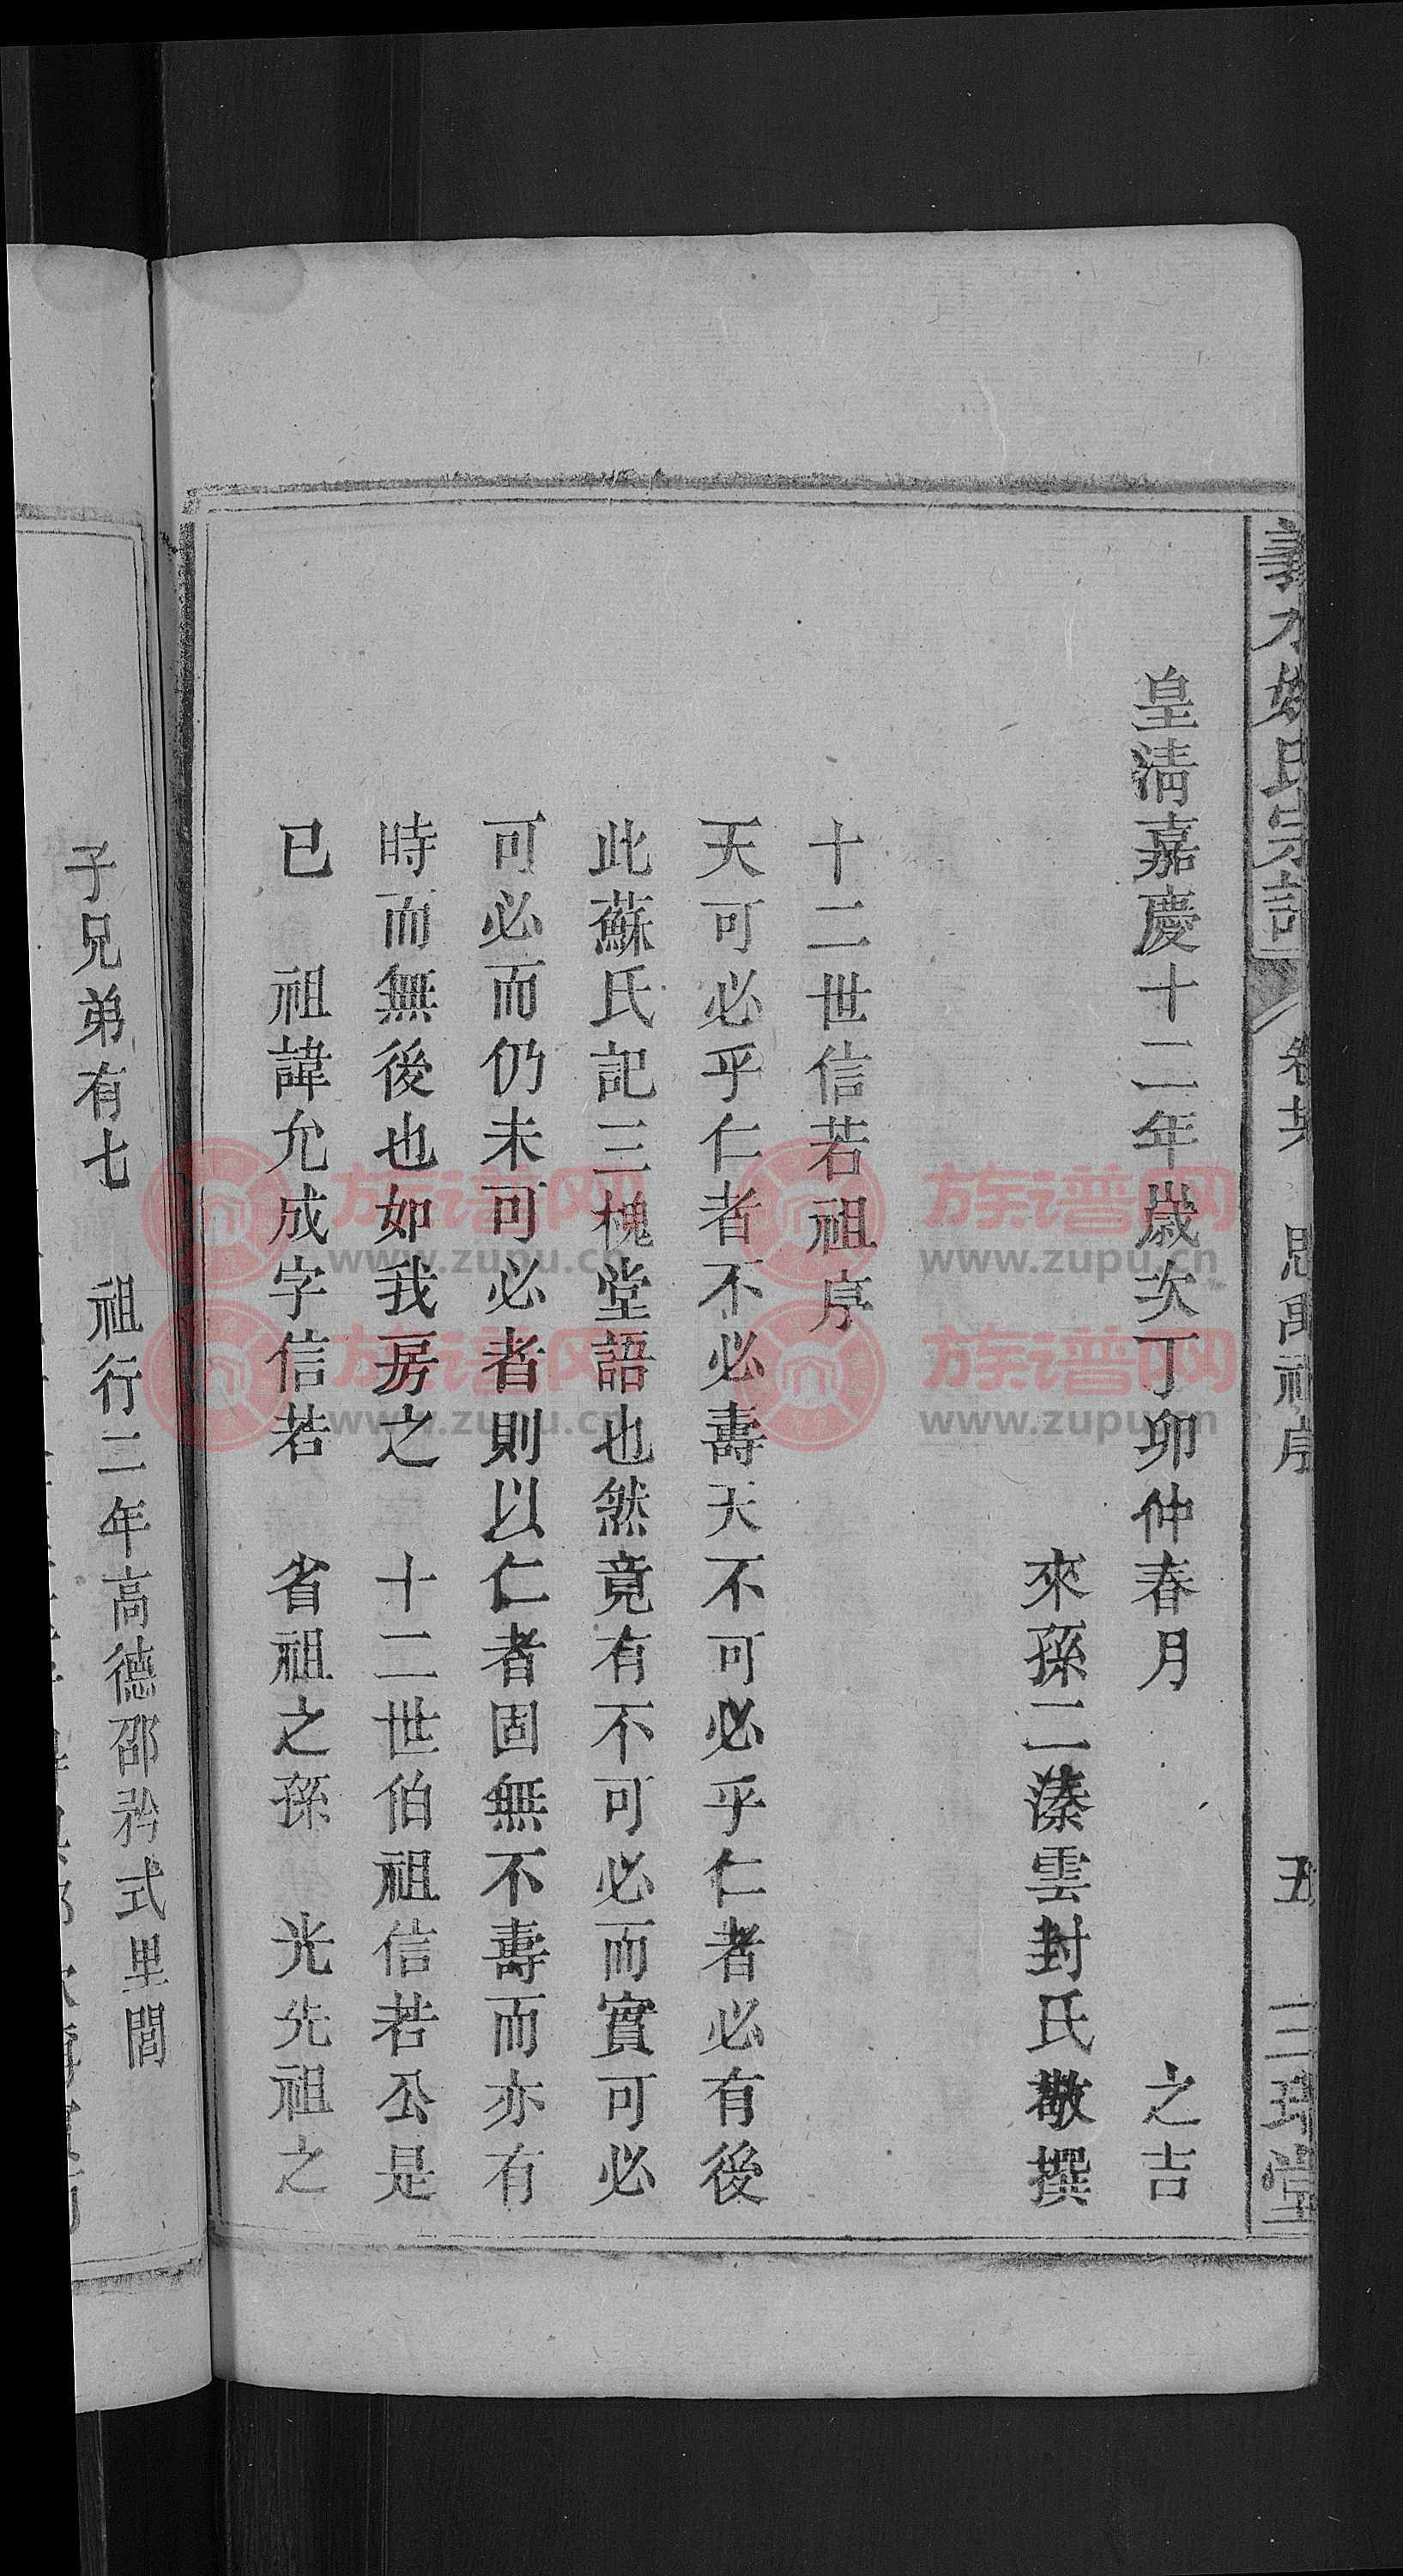 皇清嘉慶十二年歲次丁卯仲春月 之吉
來孫二溱雲封氏敬撰
十二世信若祖序
天可必乎仁者不必壽天不可必乎仁者必有後
此蘇氏記三槐堂語也然竟有不可必而實可必
可必而仍未可必者則以仁者固無不壽而亦有
時而無後也如我房之 十二世伯祖信若公是
已 祖諱允成字信若 省祖之孫 光先祖之
子兄弟有七 祖行二年高德邵矜式里閭
氏宗譜 卷 祖序 五 三 堂
族谱网 www.zupu.cn
族谱网 www.zupu.cn
族谱网 www.zupu.cn
族谱网 www.zupu.cn